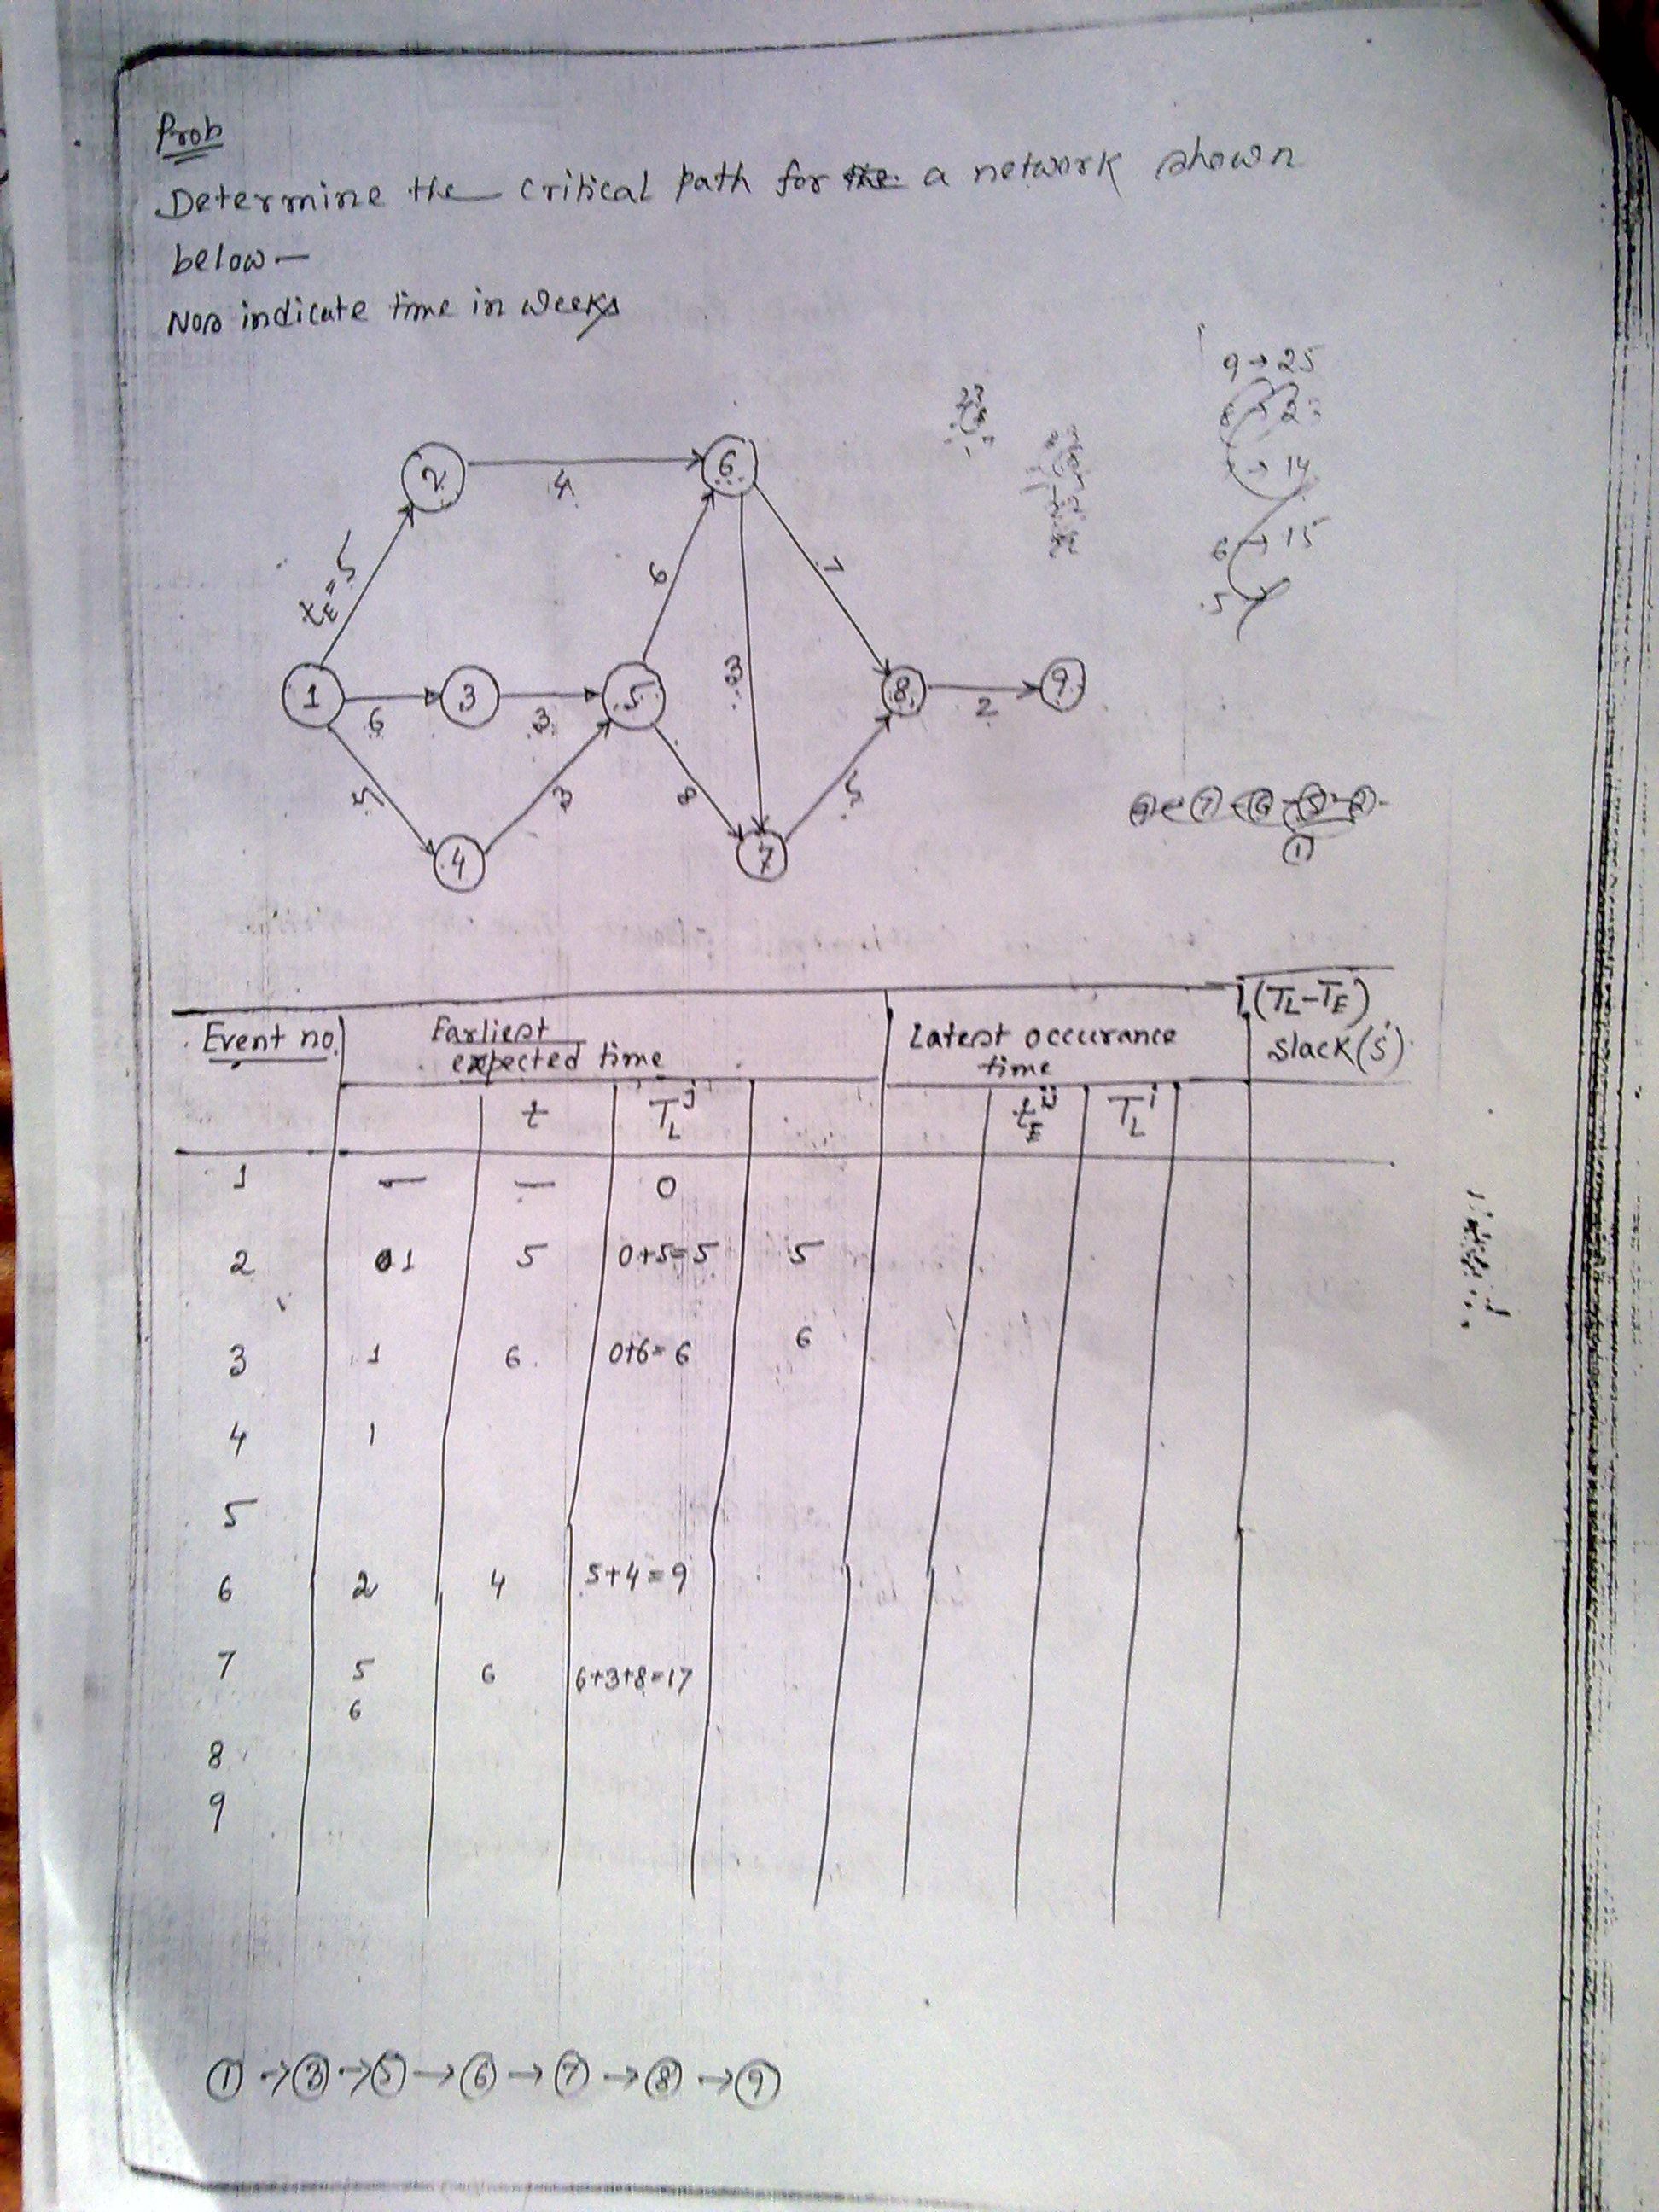 Prob
Determine the critical path for the a network shown
below —
Nos indicate time in weeks
9 → 25
→ 14
6 → 15
5
2
4
6
tE = 5
6
7
3
1
6
3
3
5
8
2
9
5
3
8
5
4
7
1
Event no.
Earliest
expected time
Latest occurance
time
(TL-TE)
slack(s)
t
TL^j
tE^ij
TL^i
1 — — 0
2 01 5 0+5=5 5
3 1 6 0+6=6 6
4 1
5
6 2 4 5+4=9
7 5 6 6+3+8=17
6
8
9
1 → 3 → 5 → 6 → 7 → 8 → 9